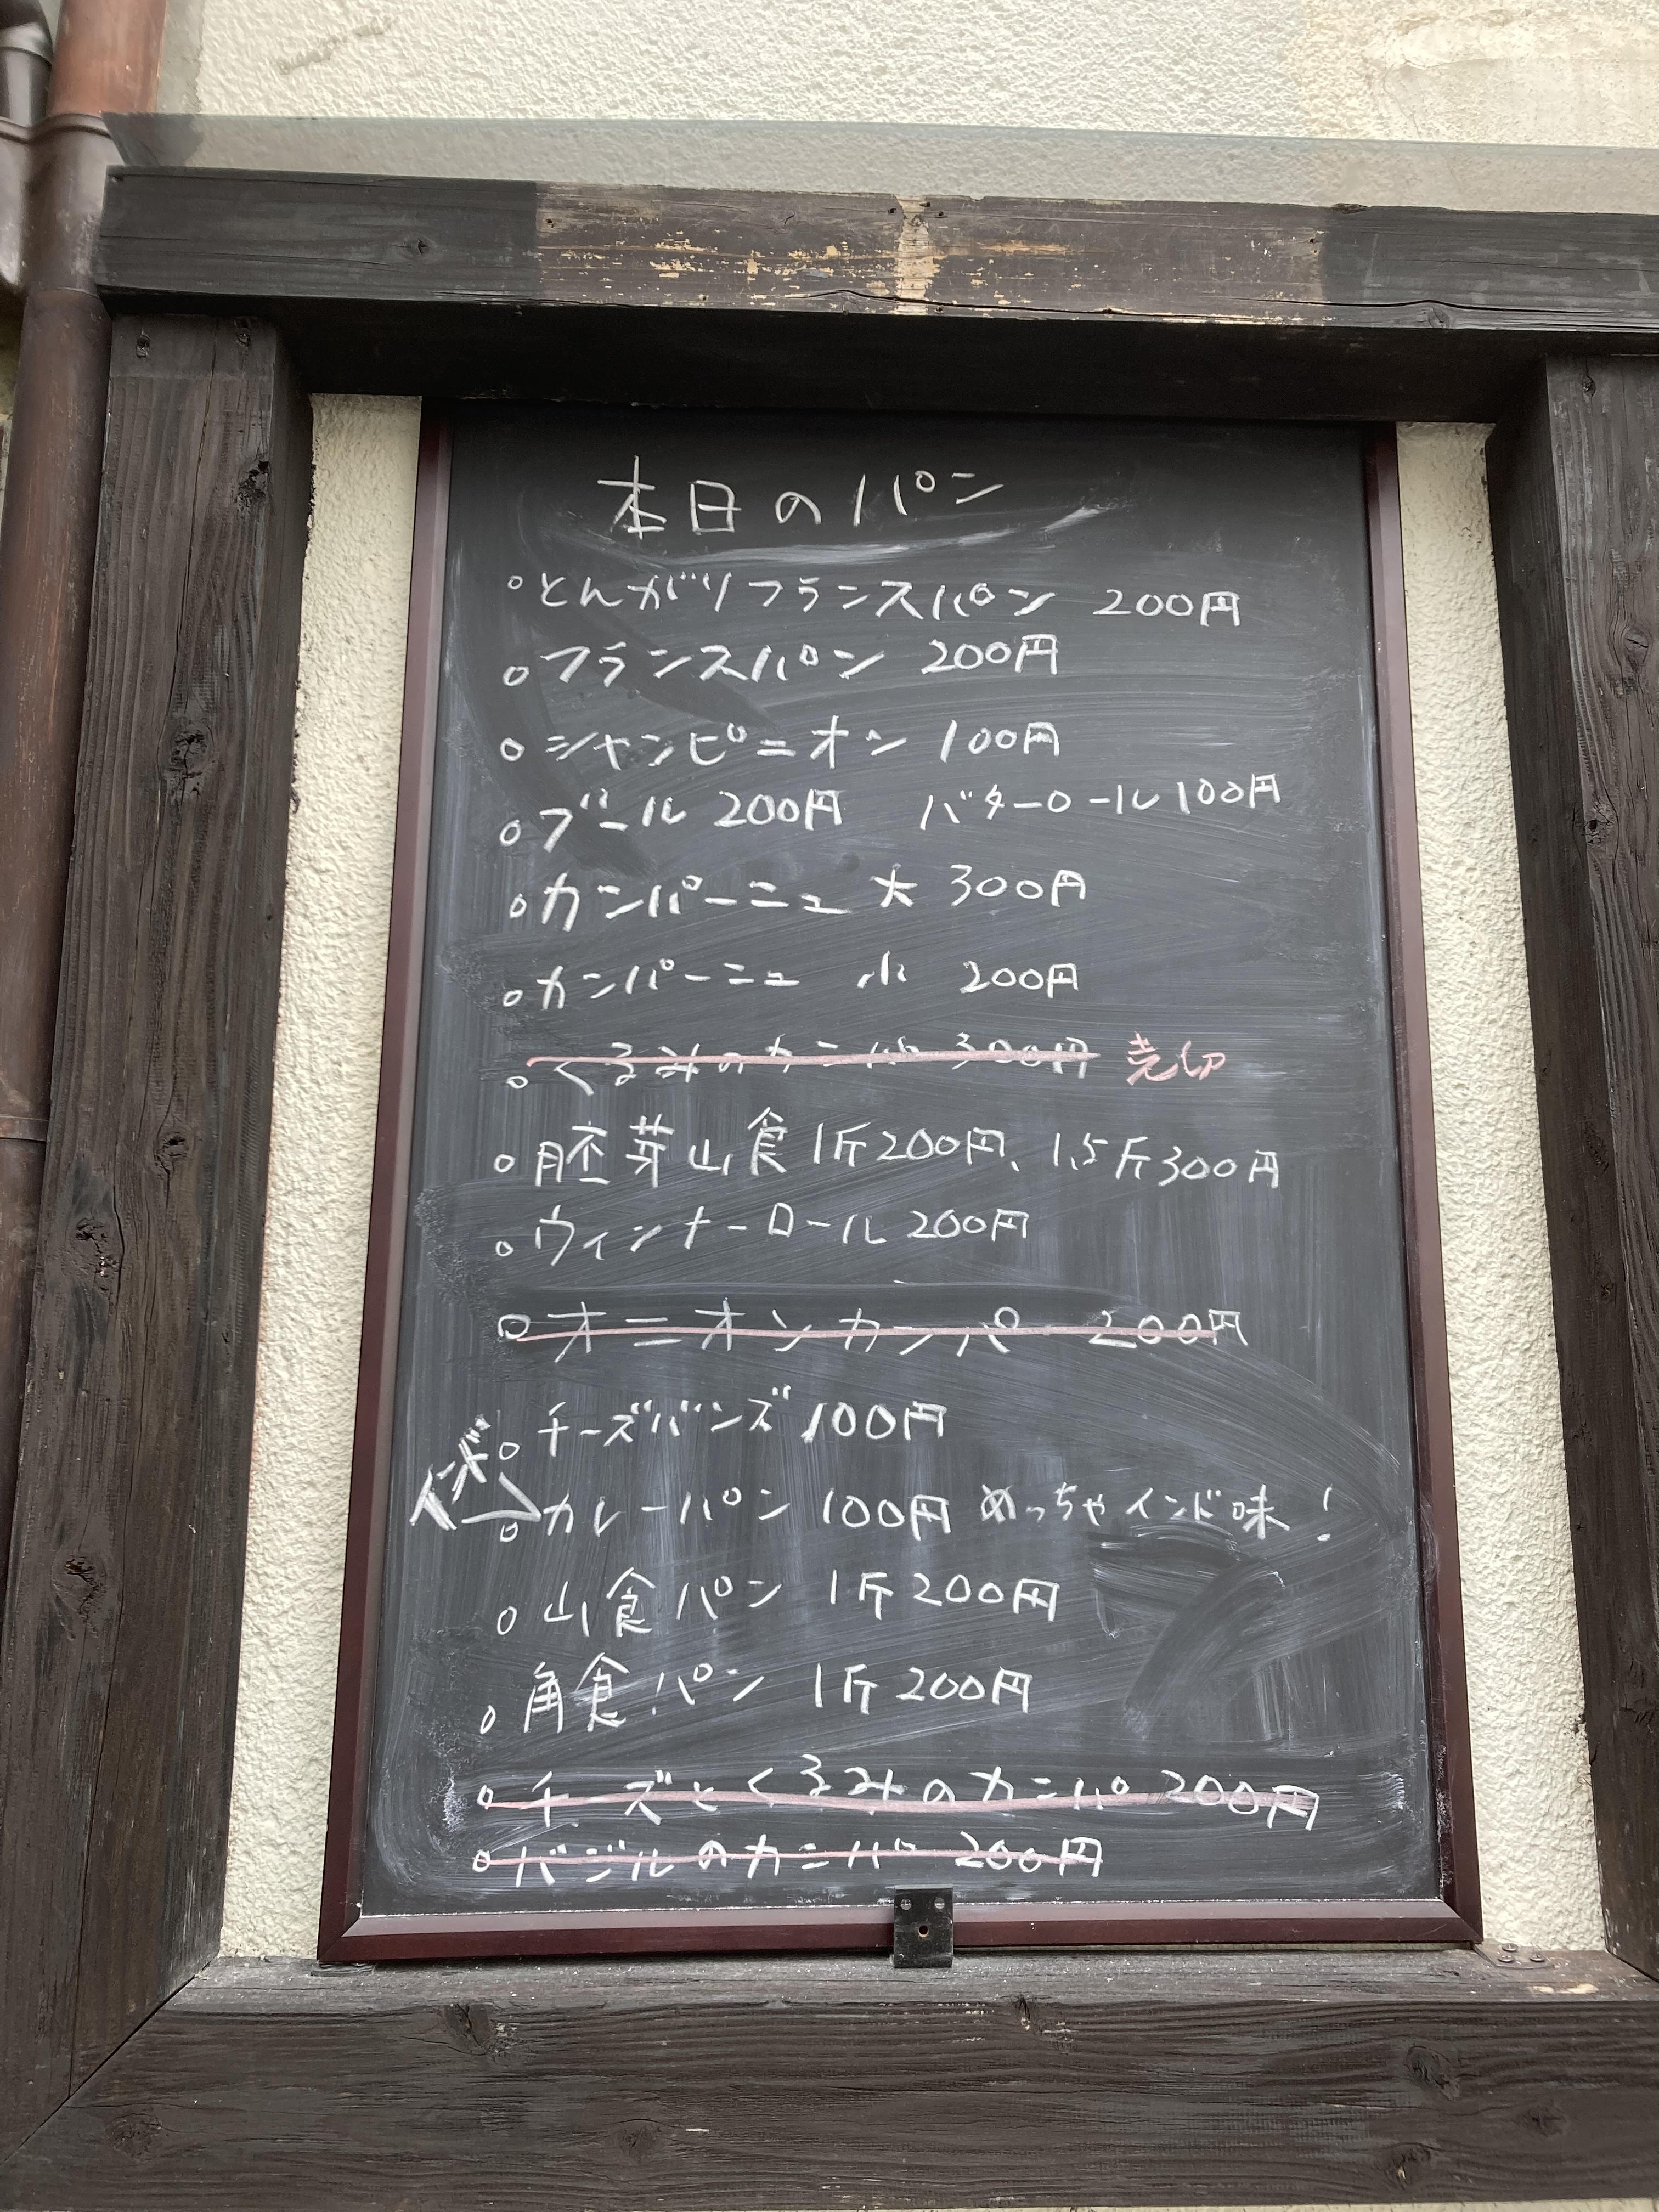 本日のパン
○とんがりフランスパン 200円
○フランスパン 200円
○シャンピニオン 100円
○ブール 200円 バターロール100円
○カンパーニュ 大 300円
○カンパーニュ 小 200円
○くるみのカンパ 300円 売切
○胚芽山食 1斤200円、1.5斤300円
○ウィンナーロール 200円
○オニオンカンパ 200円
○チーズバンズ 100円
○カレーパン 100円 めっちゃインド味!
○山食パン 1斤200円
○角食パン 1斤200円
○チーズとくるみのカンパ 200円
○バジルのカンパ 200円